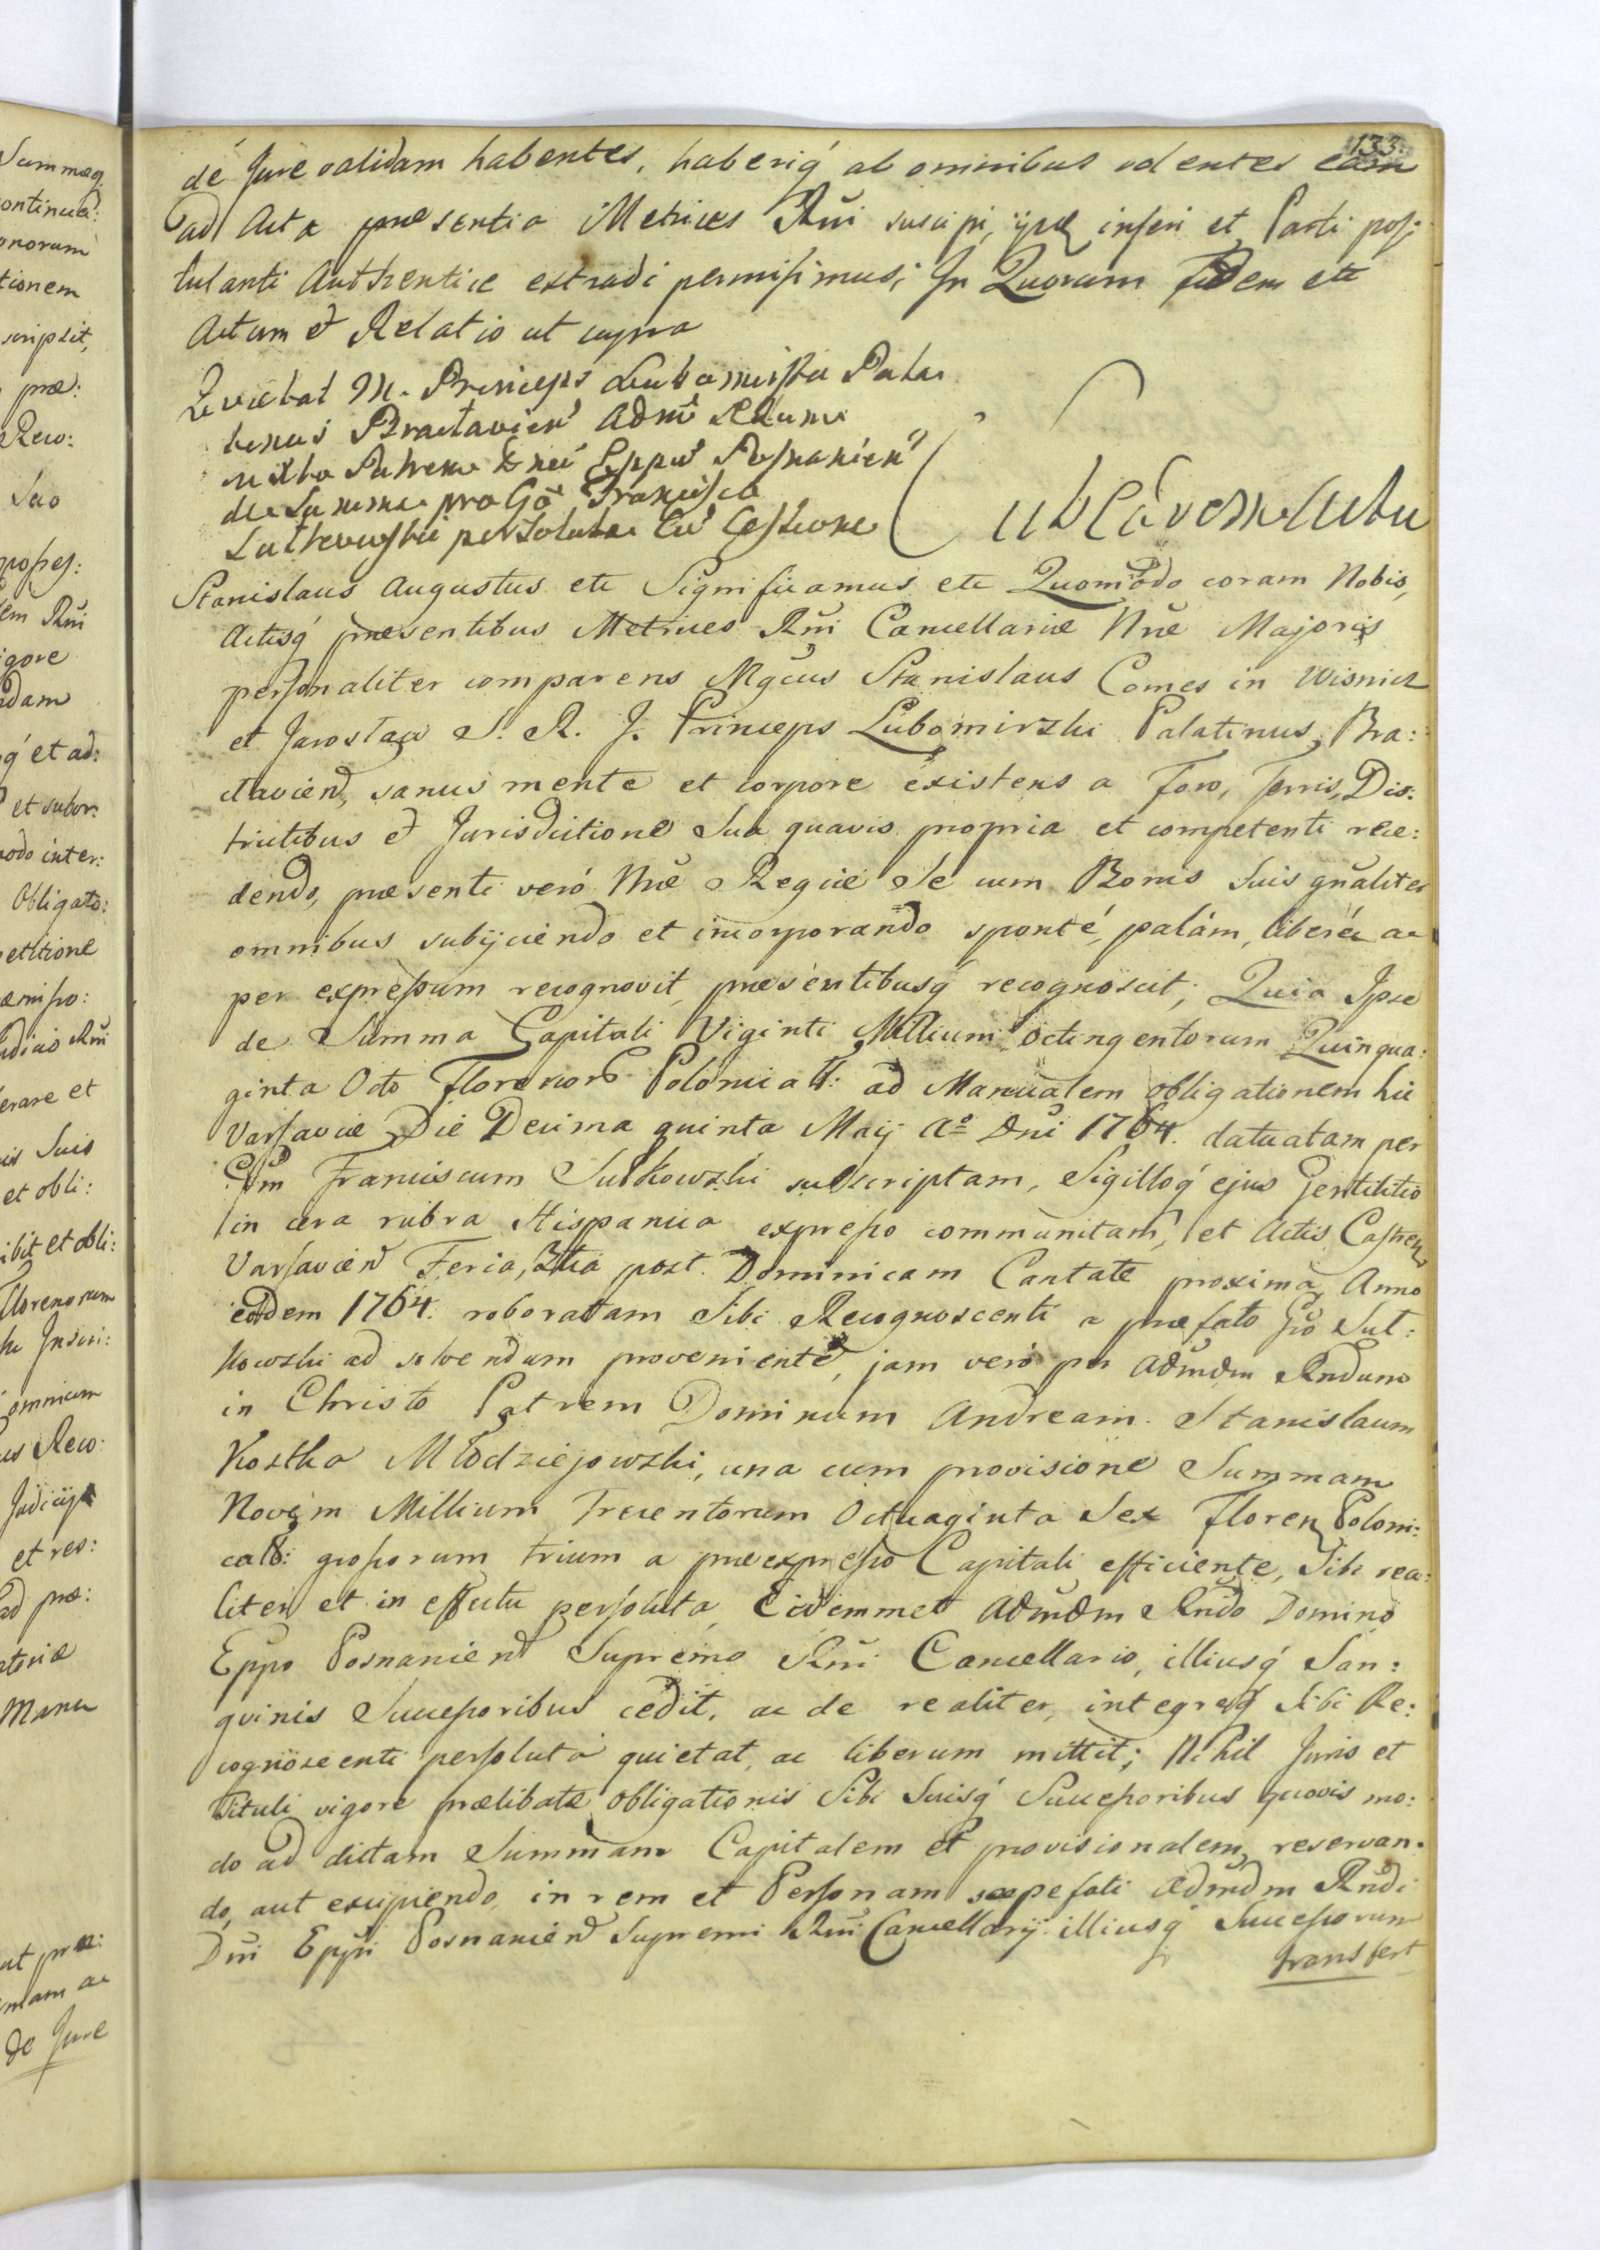 133.
de Jure validam habentes, haberiq́ ab omnibus volentes eam
ad Acta præsentia Metrices Rñi suscipi, ijsq inseri et Parti pos:
tulanti Authentice extradi permisimus; In Quorum fidem etc
Actum et Relatio ut supra
Quietat M. Princeps Lubomirski Pala
tinus Bractavien Adm Rdum
in Xto Patrem Epps Posnanien
de Summa pro Go Francisco
Sutkowski persoluta cū Cessione
Stanislaus Augustus etc Significamus etc Quomodo coram Nobis,
Actisq́ præsentibus Metrices Rñi Cancellariæ Nræ Majoris
personaliter comparens Mgcus Stanislaus Comes in Wisnicz
et Jaroslaw S. R. J. Princeps Lubomirzki Palatinus Bra:
clavien, sanus mente et corpore existens a Foro, Terris, Dis:
trictibus et Jurisdictione Sua quavis propria et competenti rece:
dendo, præsenti veró Nræ Regiæ Se cum Bonis Suis gnaliter
omnibus subijciendo et incorporando sponté, palám, liberé ac
per expressum recognovit, præsentibusq́ recognoscit; Quia Ipse
de Summa Capitali Viginti Millium Octingentorum Quinqua:
ginta Octo Florenor Polonicall: ad Manualem obligationem hic
Varsaviæ Die Decima quinta Maij Ao Dni 1764. datuatam per
Gsm Franciscum Sutkowzki subscriptam, Sigilloq́ ejus Gentilitio
in cera rubra Hispanica expresso communitam, et Actis Castren
Varsavien Feria 3tia post Dominicam Cantate proxima Anno
eodem 1764. roboratam Sibi Recognoscenti a præfato Gso Sut:
kowzki ad solvendum proveniente, jam veró per Admdm Rndum
in Christo Patrem Dominum Andream Stanislaum
Kostka Młodziejowzki, una cum provisione Summam
Novem Millium Trecentorum Octuaginta Sex Floren Poloni:
call: grossorum trium a præexpresso Capitali efficiente, Sibi rea:
liter et in effectu persoluta, Eidemmet Admdm Rndo Domino
Eppo Posnanien Supremo Rñi Cancellario, illiusq́ San:
gvinis Successoribus cedit, ac de realiter, integreq́ Sibi Re:
cognoscenti persoluta quietat, ac liberum mittit; Nihil Juris et
Tituli vigore prælibatæ obligationis Sibi Suisq́ Successoribus quovis mo:
do ad dictam Summam Capitalem et provisionalem reservan:
do, aut excipiendo, in rem et Personam sæpefati Admdm Rndi
Dni Eppi Posnanien Supremi Rñi Cancellarij illiusq́ Successorum
transfert